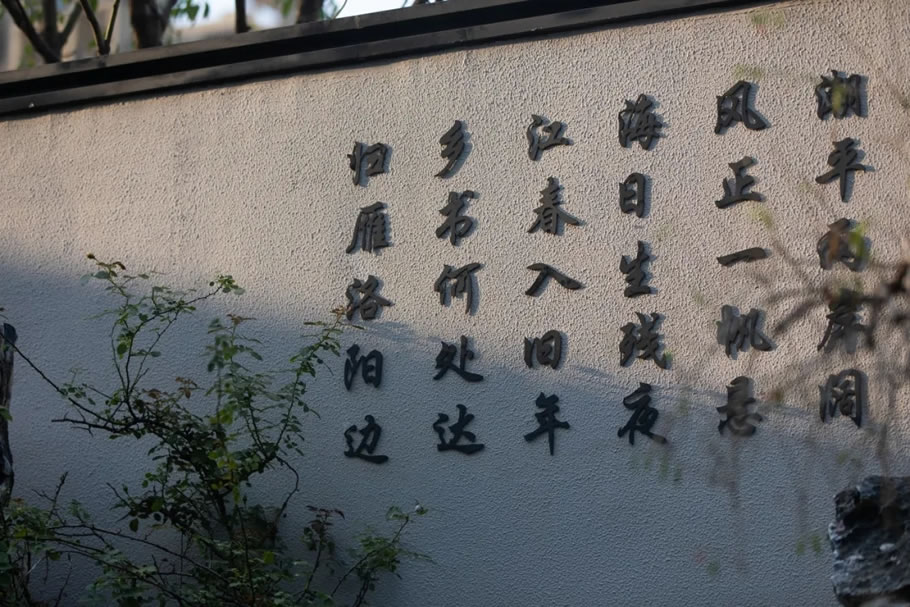 潮平两岸阔
风正一帆悬
海日生残夜
江春入旧年
乡书何处达
归雁洛阳边